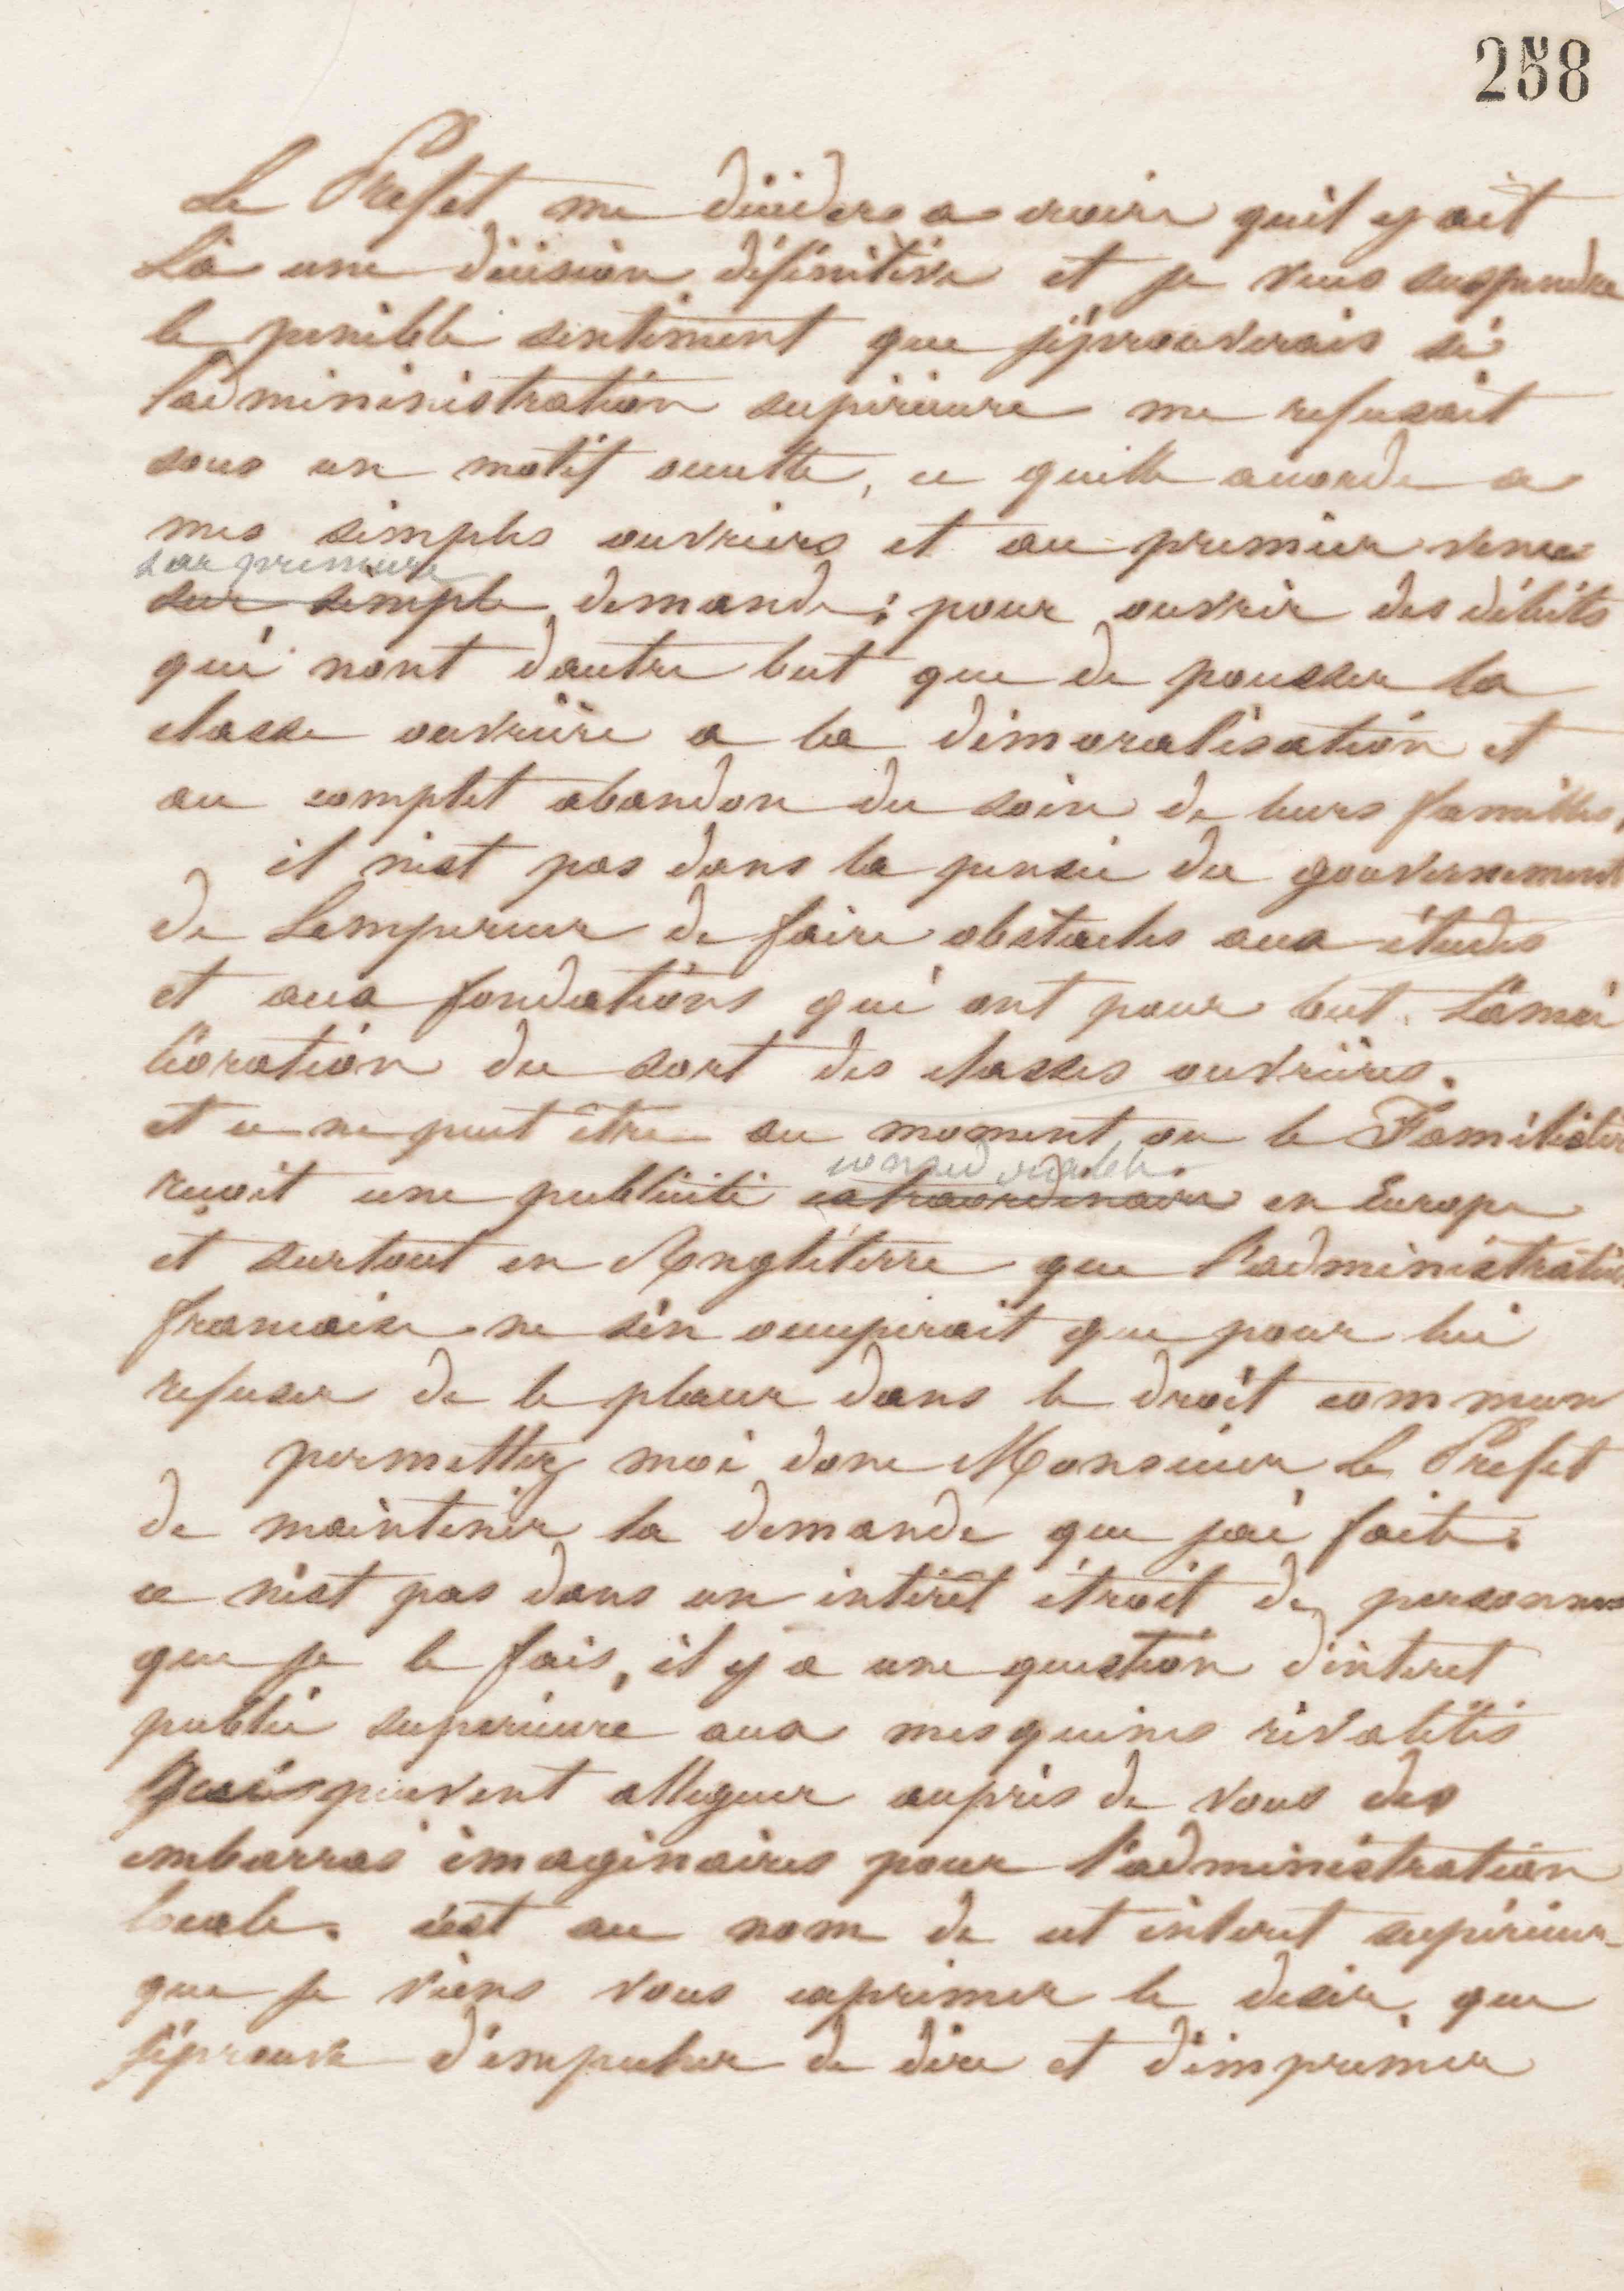 258
Le Prefet me décider a croire quil y ait
Là une décision définitive et je veux suspendre
le penible sentiment que j'éprouverais si
l'admininistration supérieure me refusait
sous un motif occulte, ce quelle accorde a
mes simples ouvriers et au premier venu
sur premiere
sur simple demande; pour ouvrir des débits
qui nont dautre but que de pousser la
classe ouvrière a la démoralisation et
au complet abandon du soin de leurs familles,
il nest pas dans la pensée du gouvernement
de Lempereur de faire obstacles aux études
et aux fondations qui ont pour but Lamé
lioration du sort des classes ouvrières.
et ce ne peut être au moment ou le Familistère
considerable
reçoit une publicité extraordinaire en Europe
et surtout en Angléterre que l'administration
francaise ne sén occuperait que pour lui
refuser de le placer dans le droit commun
permettez moi donc Monsieur le Prefet
de maintenir la demande que jai faite.
ce nest pas dans un intérêt étroit de personnes
que je le fais, il y a une question dinteret
public superieure aux mesquines rivalités
qui peuvent alleguer auprès de vous des
embarras imaginaires pour l'administration
locale. cest au nom de cet interet supérieur
que je viens vous exprimer le desir que
j'éprouve d'empecher de dire et d'imprimer